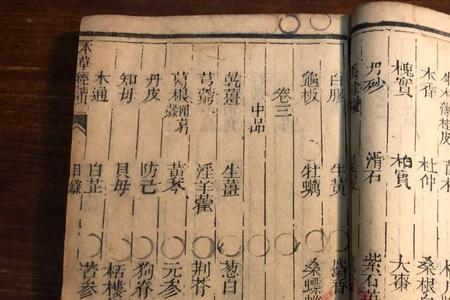 木香 杜仲 桑根
槐實 柏實 大棗
丹砂 滑石 紫石
白膠 牛黃 麝香
龜板 牡蠣 桑螵
卷三
中品
乾薑 生薑 葱白
芎藭 淫羊藿 荆芥
葛根 黃芩 元參
丹皮 防己 狗脊
知母 貝母 栝樓
木通 白芷 苦參
本草經讀 目錄